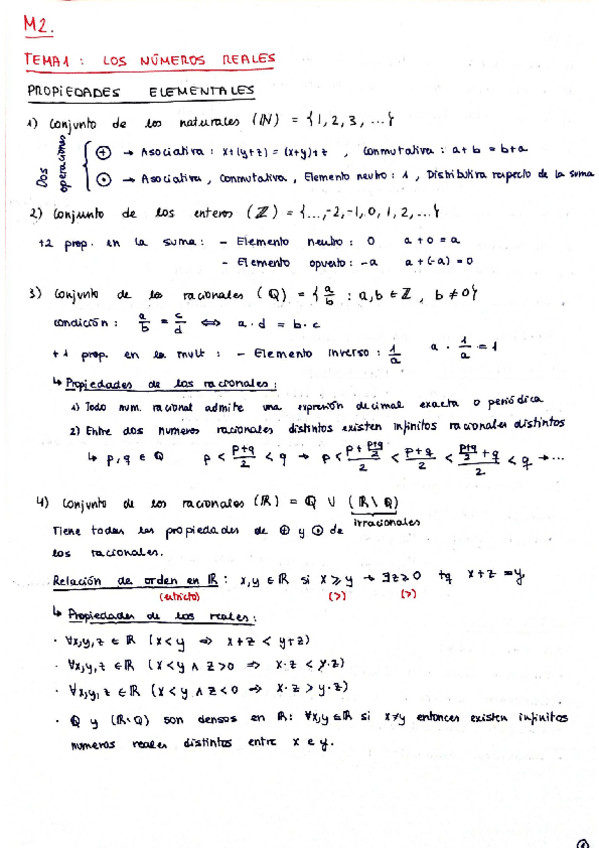 M2.
TEMA 1 : LOS NÚMEROS REALES
PROPIEDADES ELEMENTALES
1) Conjunto de los naturales (ℕ) = {1, 2, 3, ...}
Dos operaciones
⊕ → Asociativa : x+(y+z) = (x+y)+z , Conmutativa : a+b = b+a
⊙ → Asociativa , Conmutativa , Elemento neutro : 1 , Distributiva respecto de la suma
2) Conjunto de los enteros (ℤ) = {..., -2, -1, 0, 1, 2, ...}
+2 prop. en la suma : - Elemento neutro : 0 a + 0 = a
- Elemento opuesto : -a a + (-a) = 0
3) Conjunto de los racionales (ℚ) = {a/b : a, b ∈ ℤ , b ≠ 0}
condición : a/b = c/d ⟺ a · d = b · c
+ 1 prop. en la mult : - Elemento inverso : 1/a a · 1/a = 1
↳ Propiedades de los racionales :
1) Todo num. racional admite una expresión decimal exacta o periódica
2) Entre dos numeros racionales distintos existen infinitos racionales distintos
↳ p, q ∈ ℚ p < (p+q)/2 < q → p < (p + (p+q)/2)/2 < (p+q)/2 < ((p+q)/2 + q)/2 < q → ...
4) Conjunto de los racionales (ℝ) = ℚ ∪ (ℝ \ ℚ)
irracionales
Tiene todas las propiedades de ⊕ y ⊙ de
los racionales.
Relación de orden en ℝ : x, y ∈ ℝ si x ⩾ y → ∃z ⩾ 0 tq x + z = y
(estricto) (>) (>)
↳ Propiedades de los reales :
· ∀x, y, z ∈ ℝ (x < y ⇒ x + z < y + z)
· ∀x, y, z ∈ ℝ (x < y ∧ z > 0 ⇒ x · z < y · z)
· ∀x, y, z ∈ ℝ (x < y ∧ z < 0 ⇒ x · z > y · z)
· ℚ y (ℝ \ ℚ) son densos en ℝ : ∀x, y ∈ ℝ si x ≠ y entonces existen infinitos
numeros reales distintos entre x e y.